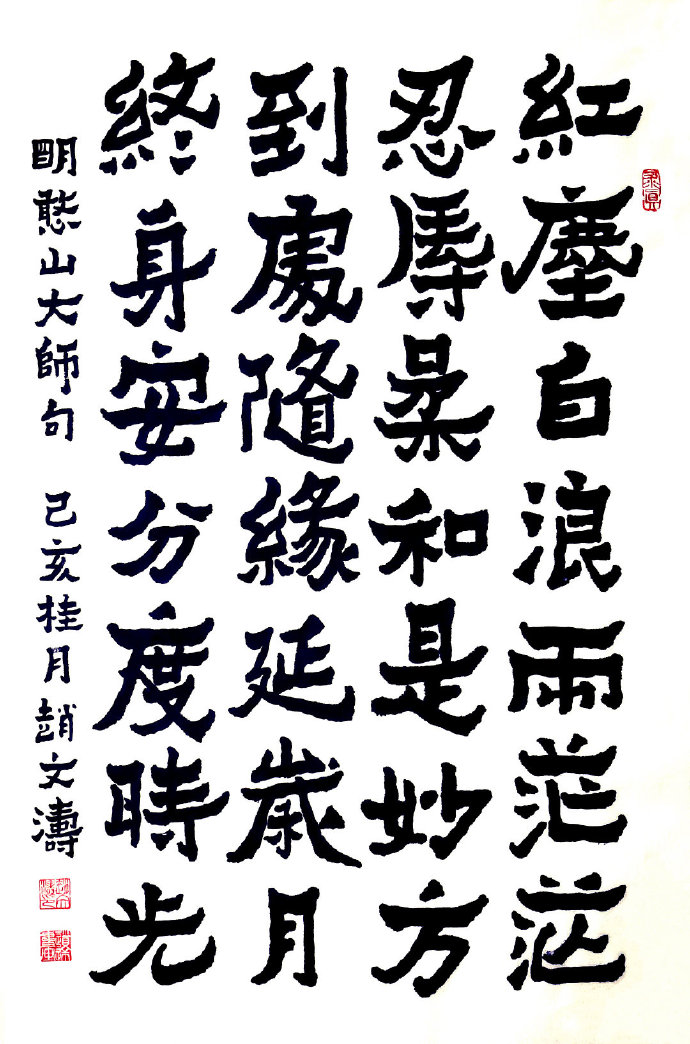 紅塵白浪雨茫茫
忍辱柔和是妙方
到處隨緣延歲月
終身安分度時光
明憨山大師句 己亥桂月趙文濤